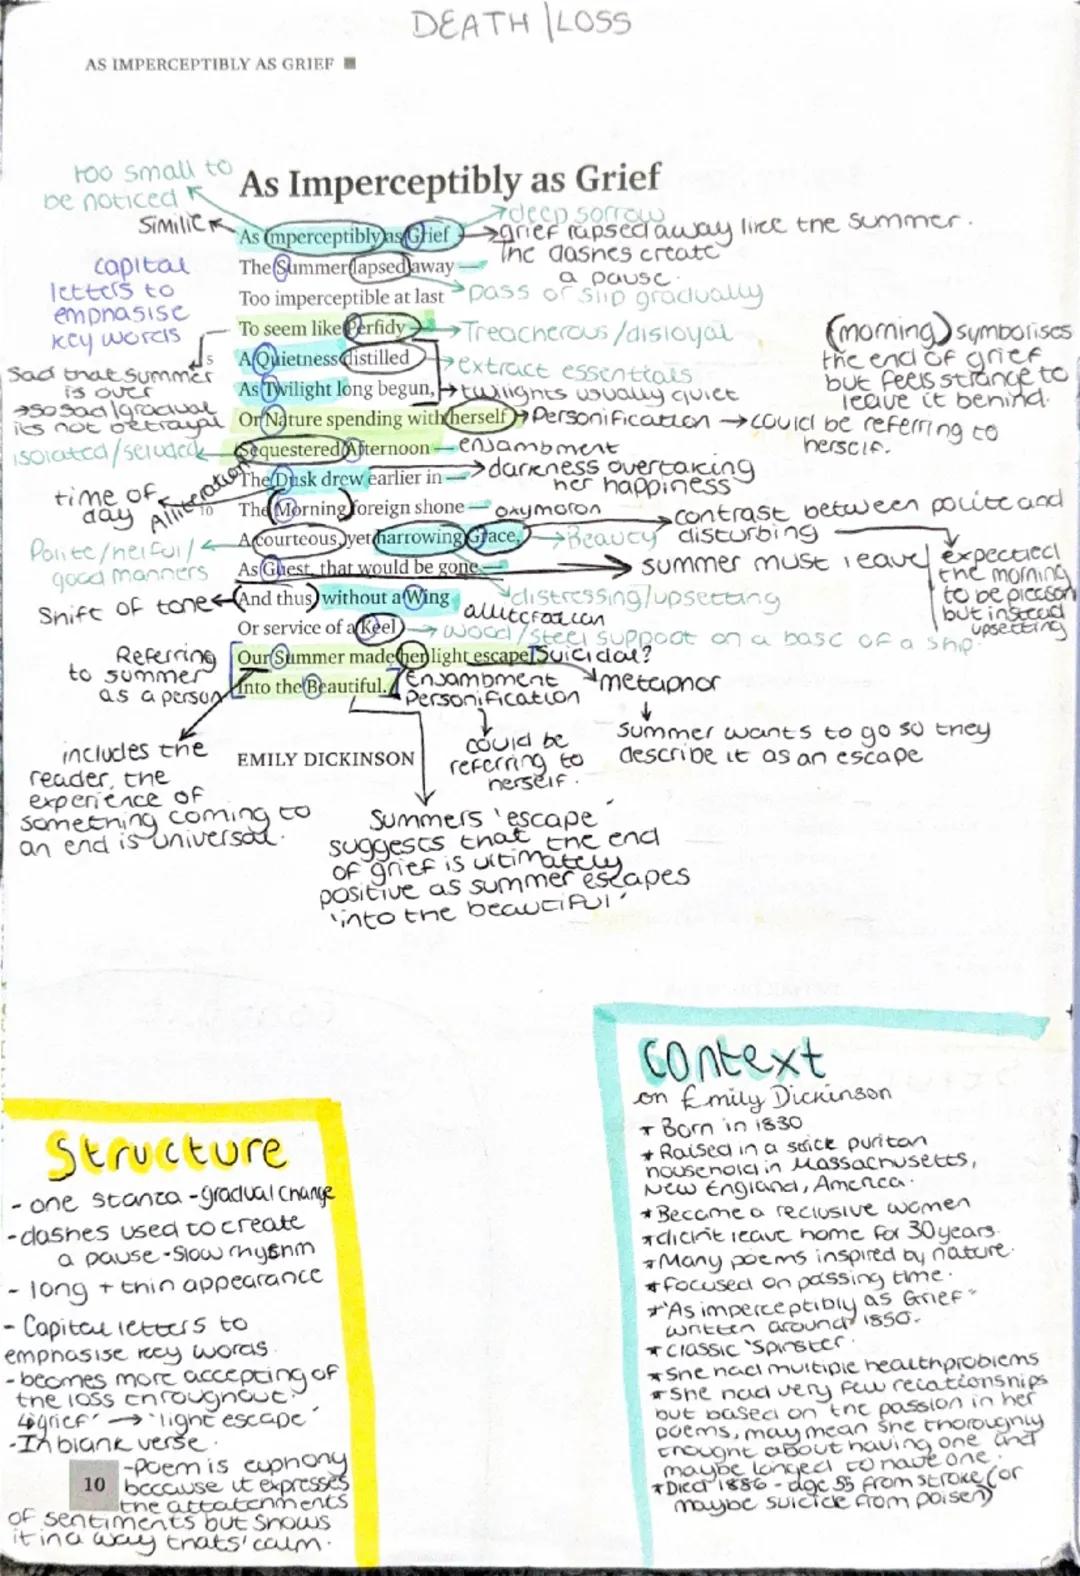 DEATH / LOSS
AS IMPERCEPTIBLY AS GRIEF
As Imperceptibly as Grief
As imperceptibly as Grief
The Summer lapsed away —
Too imperceptible at last
To seem like Perfidy —
A Quietness distilled
As Twilight long begun,
Or Nature spending with herself
Sequestered Afternoon —
The Dusk drew earlier in —
The Morning foreign shone —
A courteous, yet harrowing Grace,
As Guest, that would be gone —
And thus, without a Wing
Or service of a Keel
Our Summer made her light escape
Into the Beautiful.
EMILY DICKINSON
too small to
be noticed
Similie
capital
letters to
emphasise
key words
5
Sad that summer
is over
→so sad/gradual
its not betrayal
isolated/secluded
time of
day
Alliteration
10
Polite/helful/
good manners
Shift of tone
Referring
to summer
as a person
includes the
reader, the
experience of
something coming to
an end is universal.
deep sorrow
grief lapsed away like the summer.
The dashes create
a pause.
pass or slip gradually
Treacherous/disloyal
extract essentials
twilights usually quiet
Personification → could be referring to
herself.
enjambment
darkness overtaking
her happiness
oxymoron
(morning) symbolises
the end of grief
but feels strange to
leave it behind.
contrast between polite and
disturbing
Beauty
summer must leave
expected
the morning
to be pleasan
but instead
upsetting
distressing/upsetting
alliteration
wood/steel support on a base of a ship.
Suicidal?
Enjambment
Personification
could be
referring to
herself.
metaphor
Summer wants to go so they
describe it as an escape
Summers 'escape'
suggests that the end
of grief is ultimately
positive as summer escapes
'into the beautiful'
Structure
- one stanza - gradual change
- dashes used to create
a pause - slow
- long + thin appearance
- Capital letters to
emphasise key words.
- becomes more accepting of
the loss throughout.
↳'grief' → 'light escape'
- In blank verse.
- poem is euphony
because it expresses
the
of sentiments but shows
it in a way thats' calm.
10
Context
on Emily Dickinson
* Born in 1830
* Raised in a puritan
household in Massachusetts,
New England, America.
* Became a reclusive women
* didn't leave home for 30 years.
* Many poems inspired by nature.
* focused on passing time.
* 'As imperceptibly as Grief'
written around 1850.
* Classic 'Spinster'.
* She had multiple health problems
* She had very few relationships
but based on the passion in her
poems, may mean she thoroughly
thought about having one and
maybe longed to have one.
* Died 1886 - age 55 from stroke (or
maybe suicide from poisen)